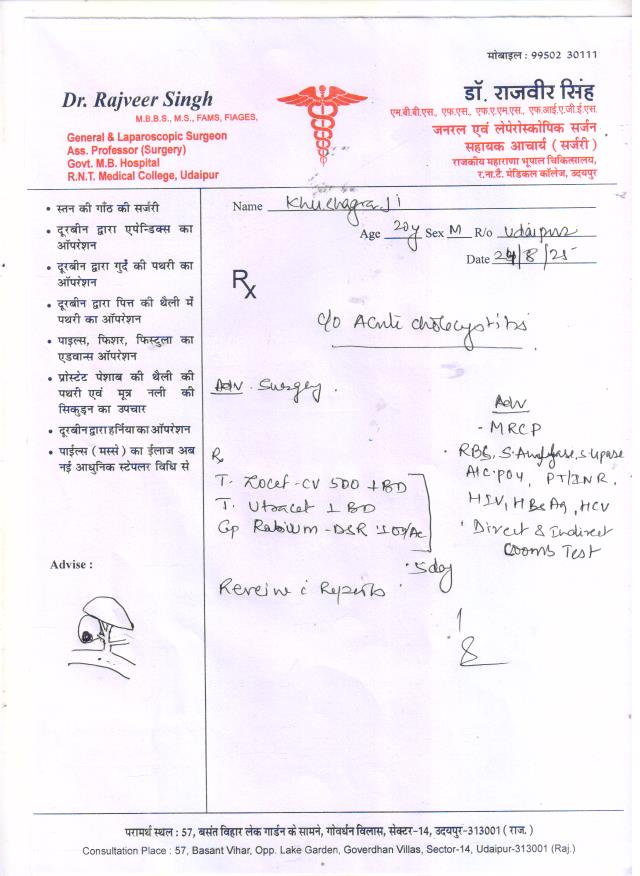 मोबाइल : 99502 30111
Dr. Rajveer Singh
M.B.B.S., M.S., FAMS, FIAGES,
General & Laparoscopic Surgeon
Ass. Professor (Surgery)
Govt. M.B. Hospital
R.N.T. Medical College, Udaipur
डॉ. राजवीर सिंह
एम.बी.बी.एस., एफ.एस., एफ.ए.एम.एस., एफ.आई.ए.जी.ई.एस.
जनरल एवं लेपेरोस्कोपिक सर्जन
सहायक आचार्य (सर्जरी)
राजकीय महाराणा भूपाल चिकित्सालय,
र.ना.टै. मेडिकल कॉलेज, उदयपुर
• स्तन की गाँठ की सर्जरी
• दूरबीन द्वारा एपेन्डिक्स का
ऑपरेशन
• दूरबीन द्वारा गुर्दे की पथरी का
ऑपरेशन
• दूरबीन द्वारा पित्त की थैली में
पथरी का ऑपरेशन
• पाइल्स, फिशर, फिस्टुला का
एडवान्स ऑपरेशन
• प्रोस्टेट पेशाब की थैली की
पथरी एवं मूत्र नली की
सिकुडन का उपचार
• दूरबीन द्वारा हर्निया का ऑपरेशन
• पाईल्स (मस्से) का ईलाज अब
नई आधुनिक स्टेपलर विधि से
Advise :
Name
Age 20y Sex M R/o Udaipur
Date 24/8/25
Rx
c/o Acute cholecystitis
Adv. Surgery.
Rx
T. Zocef-CV 500 1 BD
T. Utracet 1 BD
Cap Rabium-DSR 1 OD/Ac
5day
Review c Reports
Adv
- MRCP
RBS, S. Amylase, S. Lipase
PT/INR,
HIV, HBsAg, HCV
Direct & Indirect
Cooms Test
परामर्श स्थल : 57, बसंत विहार लेक गार्डन के सामने, गोवर्धन विलास, सेक्टर-14, उदयपुर-313001 (राज.)
Consultation Place : 57, Basant Vihar, Opp. Lake Garden, Goverdhan Villas, Sector-14, Udaipur-313001 (Raj.)